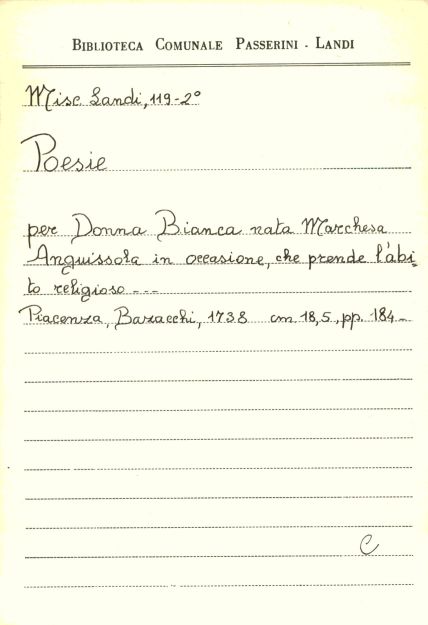 BIBLIOTECA COMUNALE PASSERINI - LANDI
Misc Landi, 119-2°
Poesie
per Donna Bianca nata Marchesa
Anguissola in occasione, che prende l'abi-
to religioso ---
Piacenza, Bazacchi, 1738 cm 18,5, pp. 184-
C